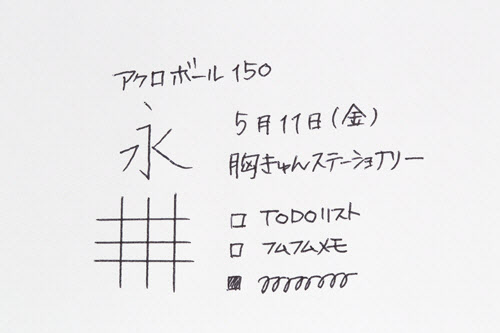 アクロボール 150
永
5月11日(金)
胸きゅんステーショナリー
□ TODOリスト
□ フムフムメモ
■